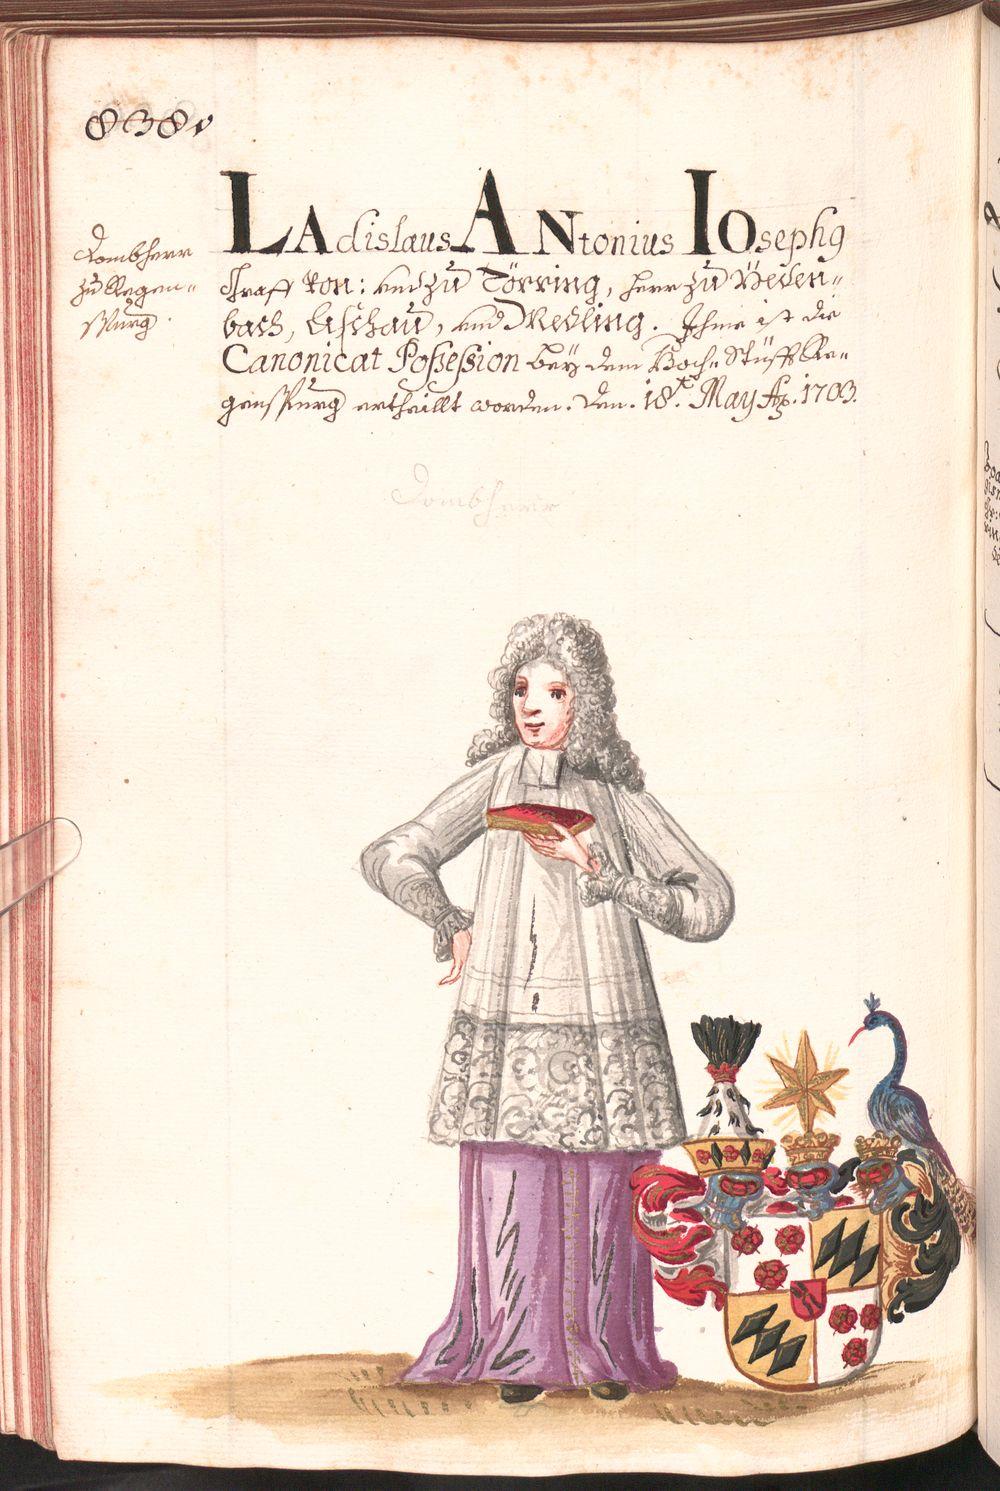 838v
Dombherr
zu Regen-
spurg.
LAdislaus ANtonius IOsephg
Graff von: und zu Törring, herr zu Seven-
bach, Eschau, und Medling. Ihme ist die
Canonicat Possession beÿ dem Hoch-Stüfft Re-
genspurg ertheillt worden. Den. 18.t May Aō. 1703.
Dombherr